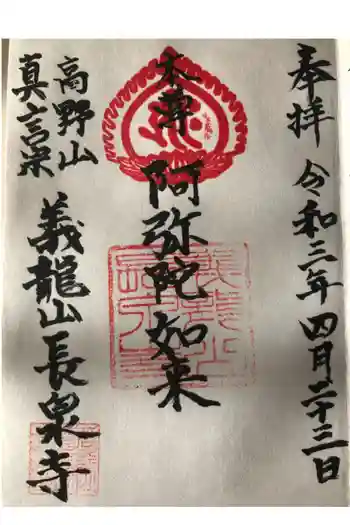 奉拝 令和三年四月二十三日
本尊 阿弥陀如来
高野山
真言宗
義龍山長泉寺